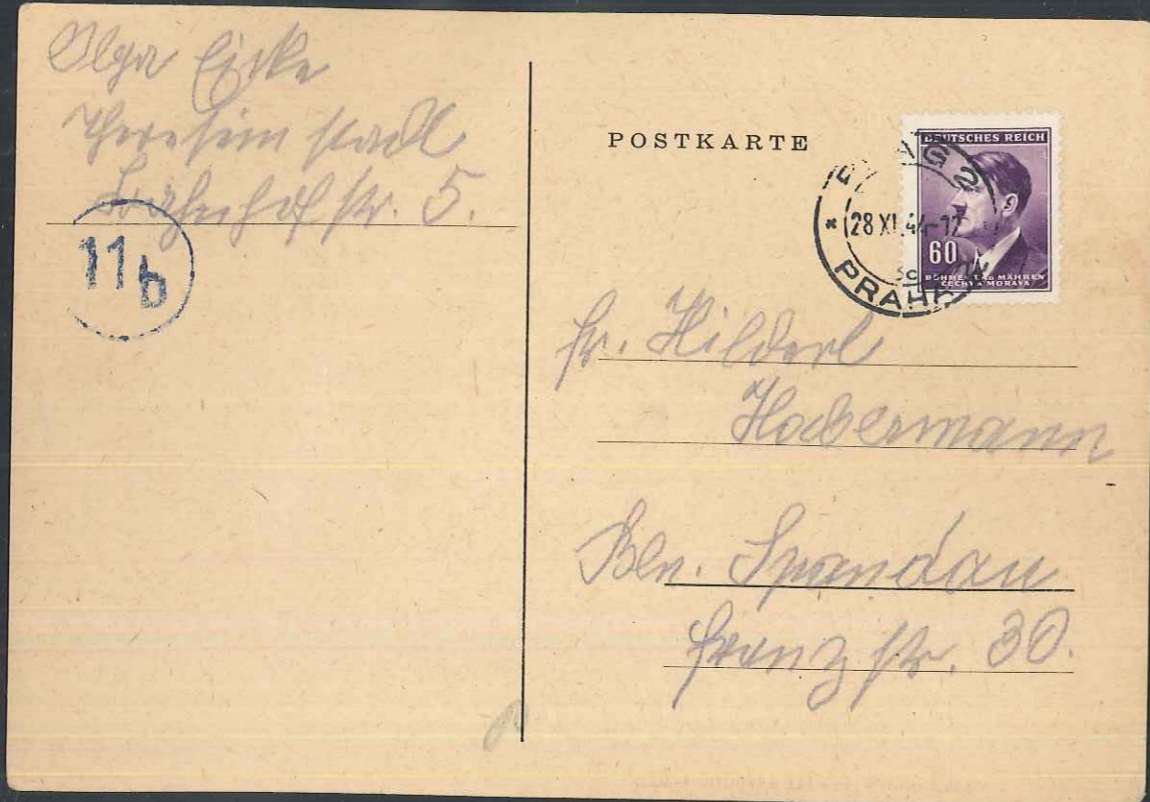 Olga Eicke
Theresienstadt
Bahnhofstr. 5.
11b
POSTKARTE
DEUTSCHES REICH
60
BÖHMEN u. MÄHREN
ČECHY a MORAVA
28 XI. 44-12
PRAHA
Fr. Hilderl
Habermann
Bln. Spandau
Franzstr. 30.